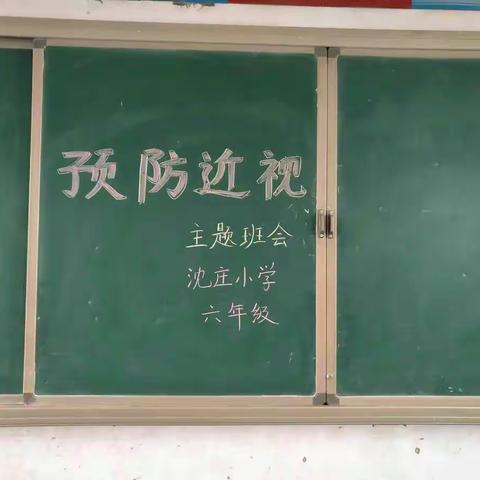 预防近视
主题班会
沈庄小学
六年级